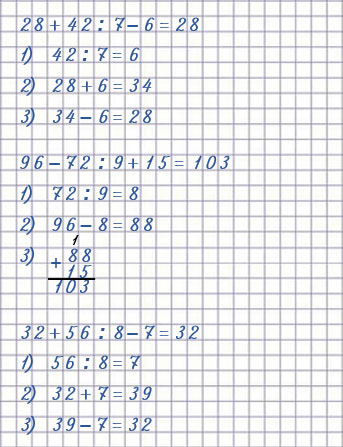 28 + 42 : 7 - 6 = 28
1) 42 : 7 = 6
2) 28 + 6 = 34
3) 34 - 6 = 28
96 - 72 : 9 + 15 = 103
1) 72 : 9 = 8
2) 96 - 8 = 88
1
3) 88
+ 15
103
32 + 56 : 8 - 7 = 32
1) 56 : 8 = 7
2) 32 + 7 = 39
3) 39 - 7 = 32